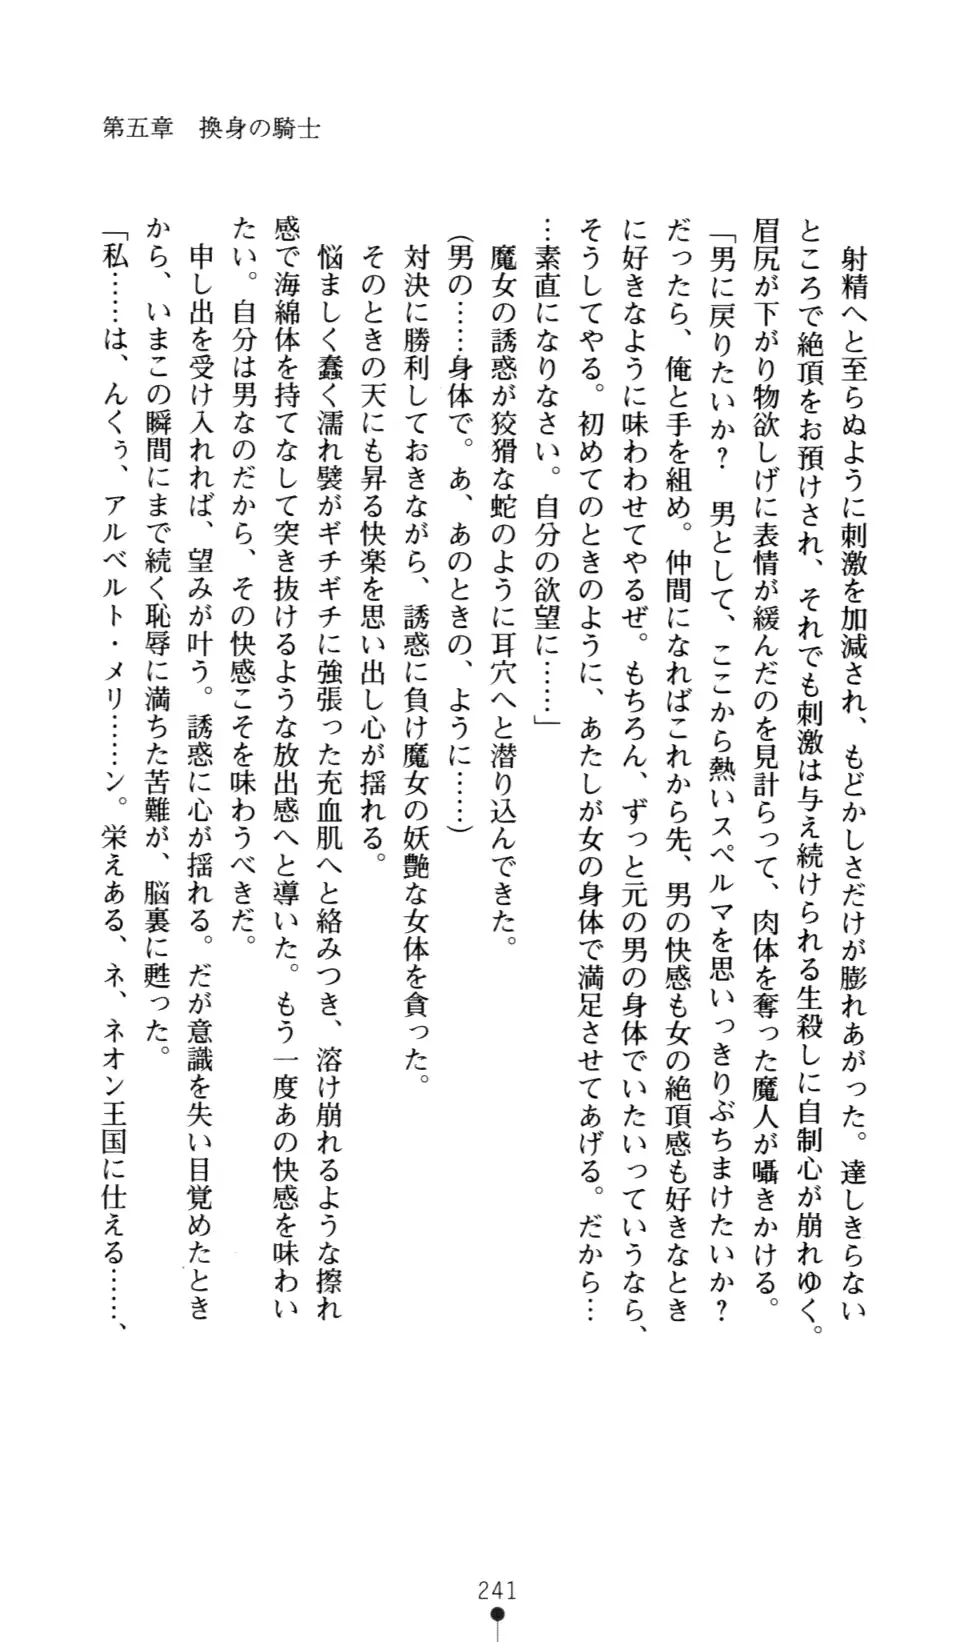 第五章　換身の騎士
　射精へと至らぬように刺激を加減され、もどかしさだけが膨れあがった。達しきらない
ところで絶頂をお預けされ、それでも刺激は与え続けられる生殺しに自制心が崩れゆく。
眉尻が下がり物欲しげに表情が緩んだのを見計らって、肉体を奪った魔人が囁きかける。
「男に戻りたいか？　男として、ここから熱いスペルマを思いっきりぶちまけたいか？
だったら、俺と手を組め。仲間になればこれから先、男の快感も女の絶頂感も好きなとき
に好きなように味わわせてやるぜ。もちろん、ずっと元の男の身体でいたいっていうなら、
そうしてやる。初めてのときのように、あたしが女の身体で満足させてあげる。だから…
…素直になりなさい。自分の欲望に……」
　魔女の誘惑が狡猾な蛇のように耳穴へと潜り込んできた。
（男の……身体で。あ、あのときの、ように……）
　対決に勝利しておきながら、誘惑に負け魔女の妖艶な女体を貪った。
　そのときの天にも昇る快楽を思い出し心が揺れる。
　悩ましく蠢く濡れ襞がギチギチに強張った充血肌へと絡みつき、溶け崩れるような擦れ
感で海綿体を持てなして突き抜けるような放出感へと導いた。もう一度あの快感を味わい
たい。自分は男なのだから、その快感こそを味わうべきだ。
　申し出を受け入れれば、望みが叶う。誘惑に心が揺れる。だが意識を失い目覚めたとき
から、いまこの瞬間にまで続く恥辱に満ちた苦難が、脳裏に甦った。
「私……は、んくぅ、アルベルト・メリ……ン。栄えある、ネ、ネオン王国に仕える……、
241